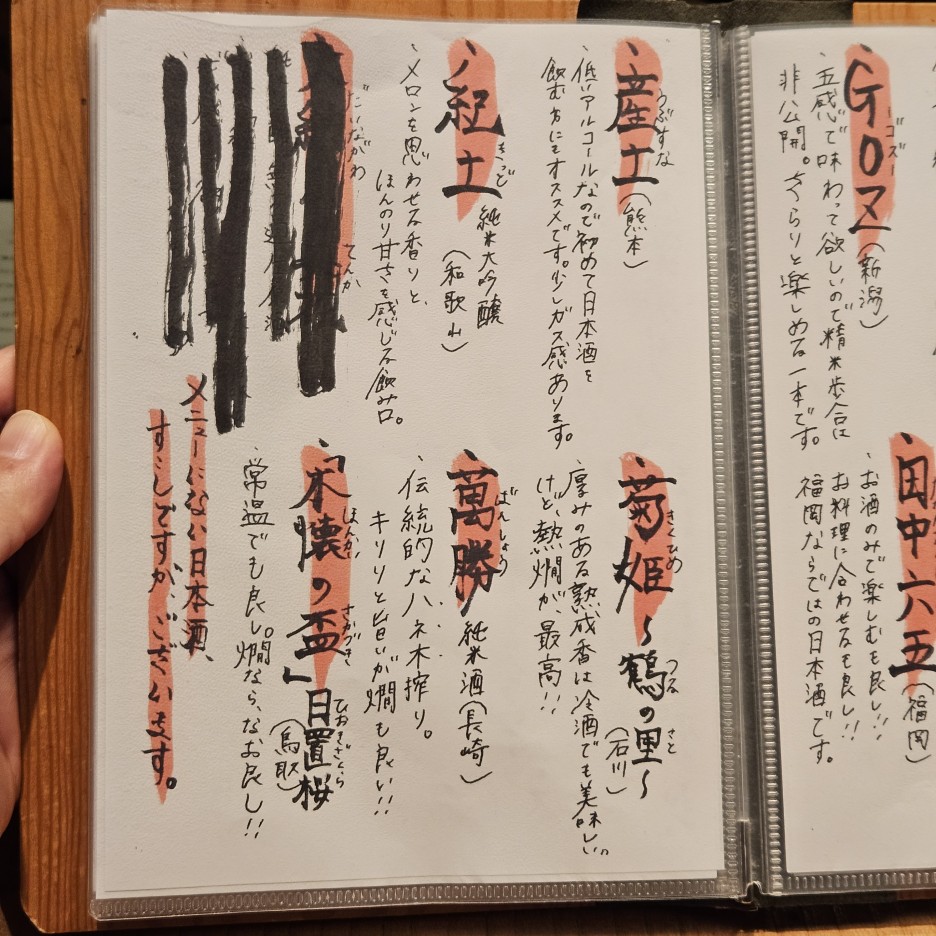 GOZ
ゴズ
(新潟)
五感で味わって欲しいので精米歩合は
非公開。さらりと楽しめる一本です。
田中六五
(福岡)
お酒のみで楽しむも良し!!
お料理に合わせるも良し!!
福岡ならではの日本酒です。
産土
うぶすな
(熊本)
低アルコールなので初めて日本酒を
飲む方にもオススメです。少しガス感あります。
紀土
きっど
純米大吟醸
(和歌山)
メロンを思わせる香りと、
ほんのり甘さを感じる飲み口。
だいながわ
てんか
菊姫
きくひめ
〜鶴の里〜
つる
さと
(石川)
厚みのある熟成香は冷酒でも美味しい。
けど、熱燗が、最高!!
萬勝
ばんしょう
純米酒(長崎)
伝統的なハネ木搾り。
キリリと旨いが燗も良い!!
「本懐の盃」日置桜
ほんかい
さかづき
ひおきざくら
(鳥取)
常温でも良し。燗なら、なお良し!!
メニューにない日本酒、
すこしですが、ございます。